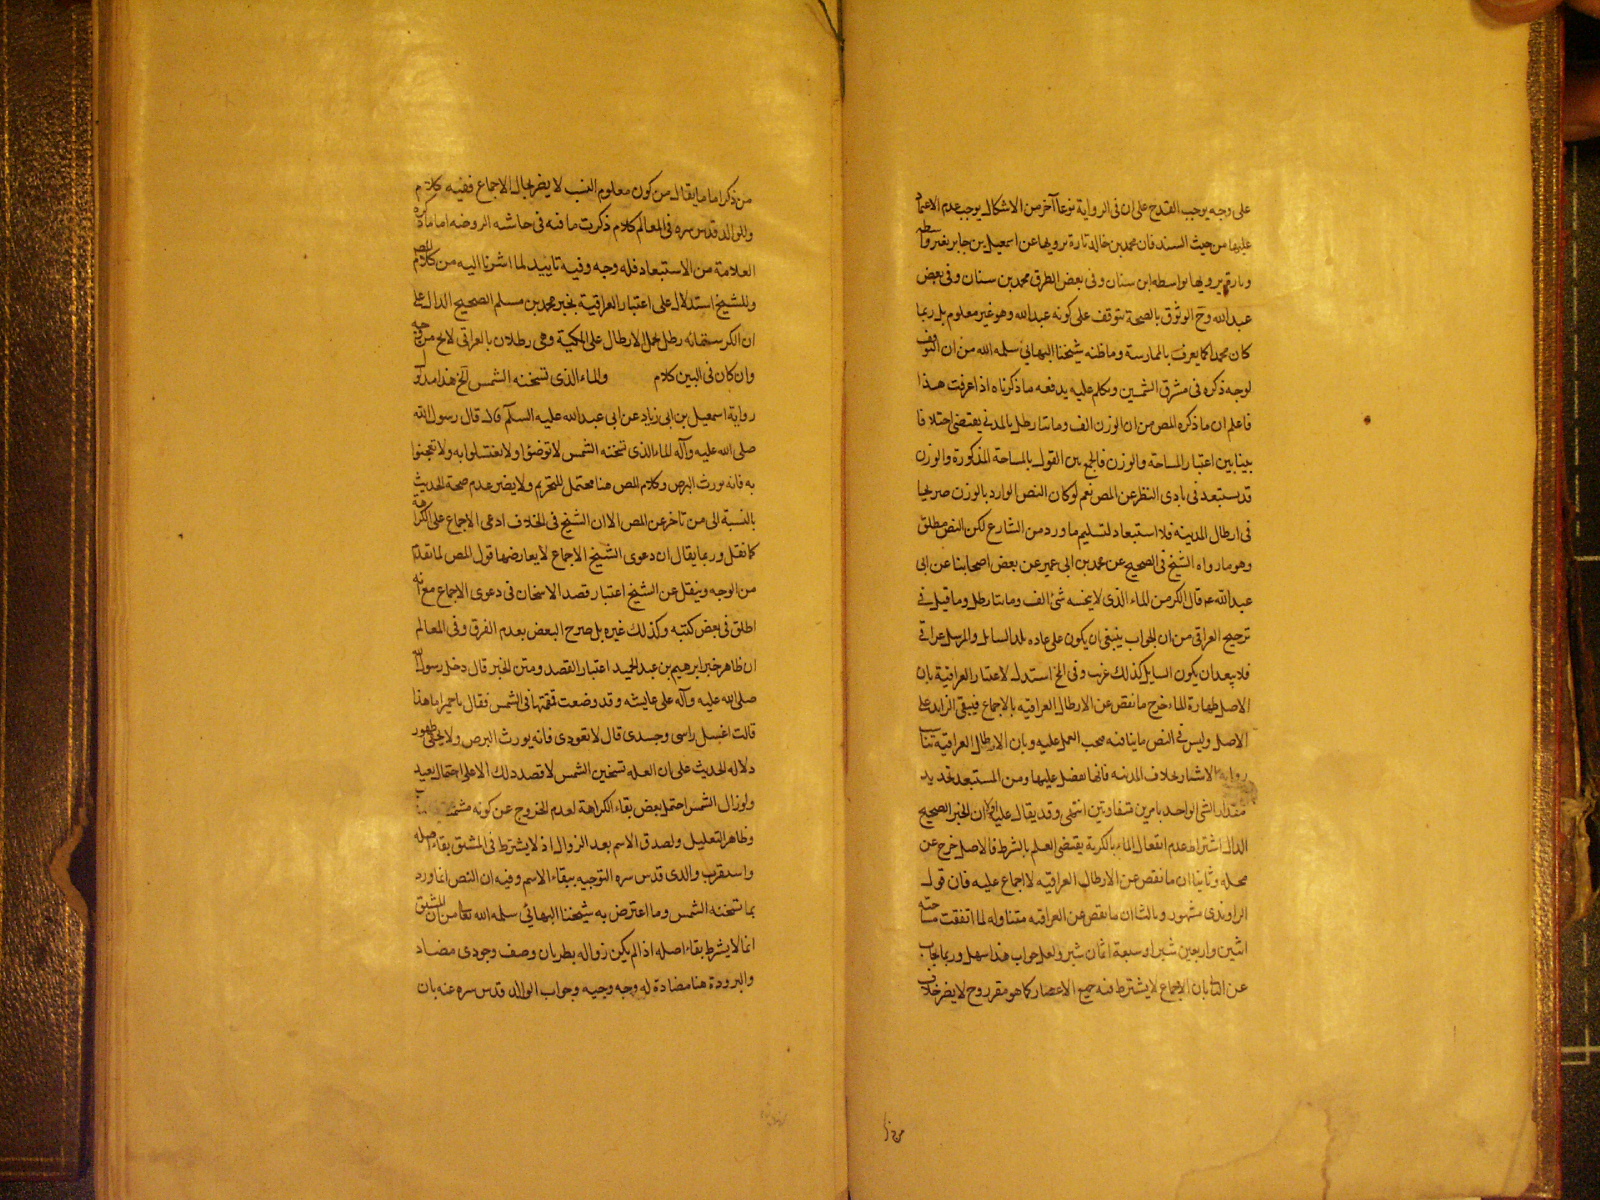 على وجه يوجب القدح على ان فى الرواية نوعا آخر من الاشكال يوجب عدم الاعتماد
عليها من حيث السند فان محمد بن خالد تارة يرويها عن اسمعيل بن جابر بغير واسطه
وتارة يرويها بواسطه ابن سنان وفى بعض الطرق محمد بن سنان وفى بعض
عبد الله وح الوثوق بالصحة يتوقف على كونه عبد الله وهو غير معلوم بل ربما
كان محمدا كما يعرف بالممارسة وما ظنه شيخنا البهائى سلمه الله من ان التوقف
لوجه ذكره فى مشرق الشمسين وتكلم عليه يدفعه ما ذكرناه اذا عرفت هذا
فاعلم ان ما ذكره المص من ان الوزن الف ومائتا رطل بالمدنى يقتضى اختلافا
بينا بين اعتبار المساحة والوزن فالجمع بين القول بالمساحة المذكورة والوزن
قد يستبعد فى بادى النظر عن المص نعم لو كان النص الوارد بالوزن صريحا
فى ارطال المدينه فلا استبعاد لتسليم ما ورد من الشارع لكن النص مطلق
وهو ما رواه الشيخ فى الصحيح عن محمد بن ابى عمير عن بعض اصحابنا عن ابى
عبد الله عه قال الكر من الماء الذى لا ينجسه شئ الف ومائتا رطل وما قيل فى
ترجيح العراقى من ان الجواب ينبغى ان يكون على عاده بلد السايل والمرسل عراقى
فلا يبعد ان يكون السايل كذلك غريب وفى المخ استدل لاعتبار العراقية بان
الاصل طهارة الماء خرج ما نقص عن الارطال العراقيه بالاجماع فيبقى الزايد على
الاصل وليس فى النص ما ينافيه فيجب العمل عليه وبان الارطال العراقية تناسب
رواية الاشبار بخلاف المدنيه فانها تفضل عليها ومن المستبعد تحديد
مقدار الشئ الواحد بامرين متفاوتين انتهى وقد يقال عليه اولا ان الخبر الصحيح
الدال اشتراط عدم انفعال الماء بالكرية يقتضى العلم بالشرط فالاصل خرج عن
محله وثانيا ان ما نقص عن الارطال العراقيه لا اجماع عليه فان قول
الراوندى مشهور وثالثا ان ما نقص عن العراقيه متناوله لما اتفقت مساحته
اثنين واربعين شبرا وسبعة اثمان شبر ولعل جواب هذا سهل وربما يجاب
عن الثانى بان الاجماع لا يشترط فيه جميع الاعصار كما هو مقرر وح لا يضر خلاف
من ذكر
من ذكر اما ما يقال من كون معلوم النسب لا يضر بحال الاجماع ففيه كلام
وللوالد قدس سره فى المعالم كلام ذكرت ما فيه فى حاشيه الروضه اما ما ذكره
العلامة من الاستبعاد فله وجه وفيه تاييد لما اشرنا اليه من كلام المص
وللشيخ استدلال على اعتبار العراقية بخبر محمد بن مسلم الصحيح الدال على
ان الكر ستمائه رطل بحمل الارطال على المكية وهى رطلان بالعراقى لا يخ من وجه
وان كان فى البين كلام والماء الذى تسخنه الشمس الخ هذا مدلول
رواية اسمعيل بن ابى زياد عن ابى عبد الله عليه السلم قال قال رسول الله
صلى الله عليه وآله الماء الذى تسخنه الشمس لا توضؤا ولا تغتسلوا به ولا تعجنوا
به فانه يورث البرص وكلام المص هنا محتمل للتحريم ولا يضر عدم صحة الحديث
بالنسبة الى من تاخر عن المص الا ان الشيخ فى الخلاف ادعى الاجماع على الكراهة
كما نقل وربما يقال ان دعوى الشيخ الاجماع لا يعارضها قول المص لما تقدم
من الوجه وينقل عن الشيخ اعتبار قصد الاسخان فى دعوى الاجماع مع انه
اطلق فى بعض كتبه وكذلك غيره بل صرح البعض بعدم الفرق وفى المعالم
ان ظاهر خبر ابرهيم بن عبد الحميد اعتبار القصد ومتن الخبر قال دخل رسول الله
صلى الله عليه وآله على عايشه وقد وضعت قمقمتها فى الشمس فقال يا حميرا ما هذا
قالت اغسل راسى وجسدى قال لا تعودى فانه يورث البرص ولا يخفى ظهور
دلاله الحديث على ان العله تسخين الشمس لا قصد ذلك الا على احتمال بعيد
ولو زال الشمس احتمل بعض بقاء الكراهة لعدم الخروج عن كونه مشمسا
وظاهر التعليل ولصدق الاسم بعد الزوال اذ لا يشترط فى المشتق بقاء اصله
واستقرب والدى قدس سره التوجيه ببقاء الاسم وفيه ان النص انما ورد
بما تسخنه الشمس وما اعترض به شيخنا البهائى سلمه الله تعا من ان المشتق
انما لا يشترط بقاء اصله اذا لم يكن زواله بطريان وصف وجودى مضاد
والبرودة هنا مضادة له وجه وجيه وجواب الوالد قدس سره عنه بان